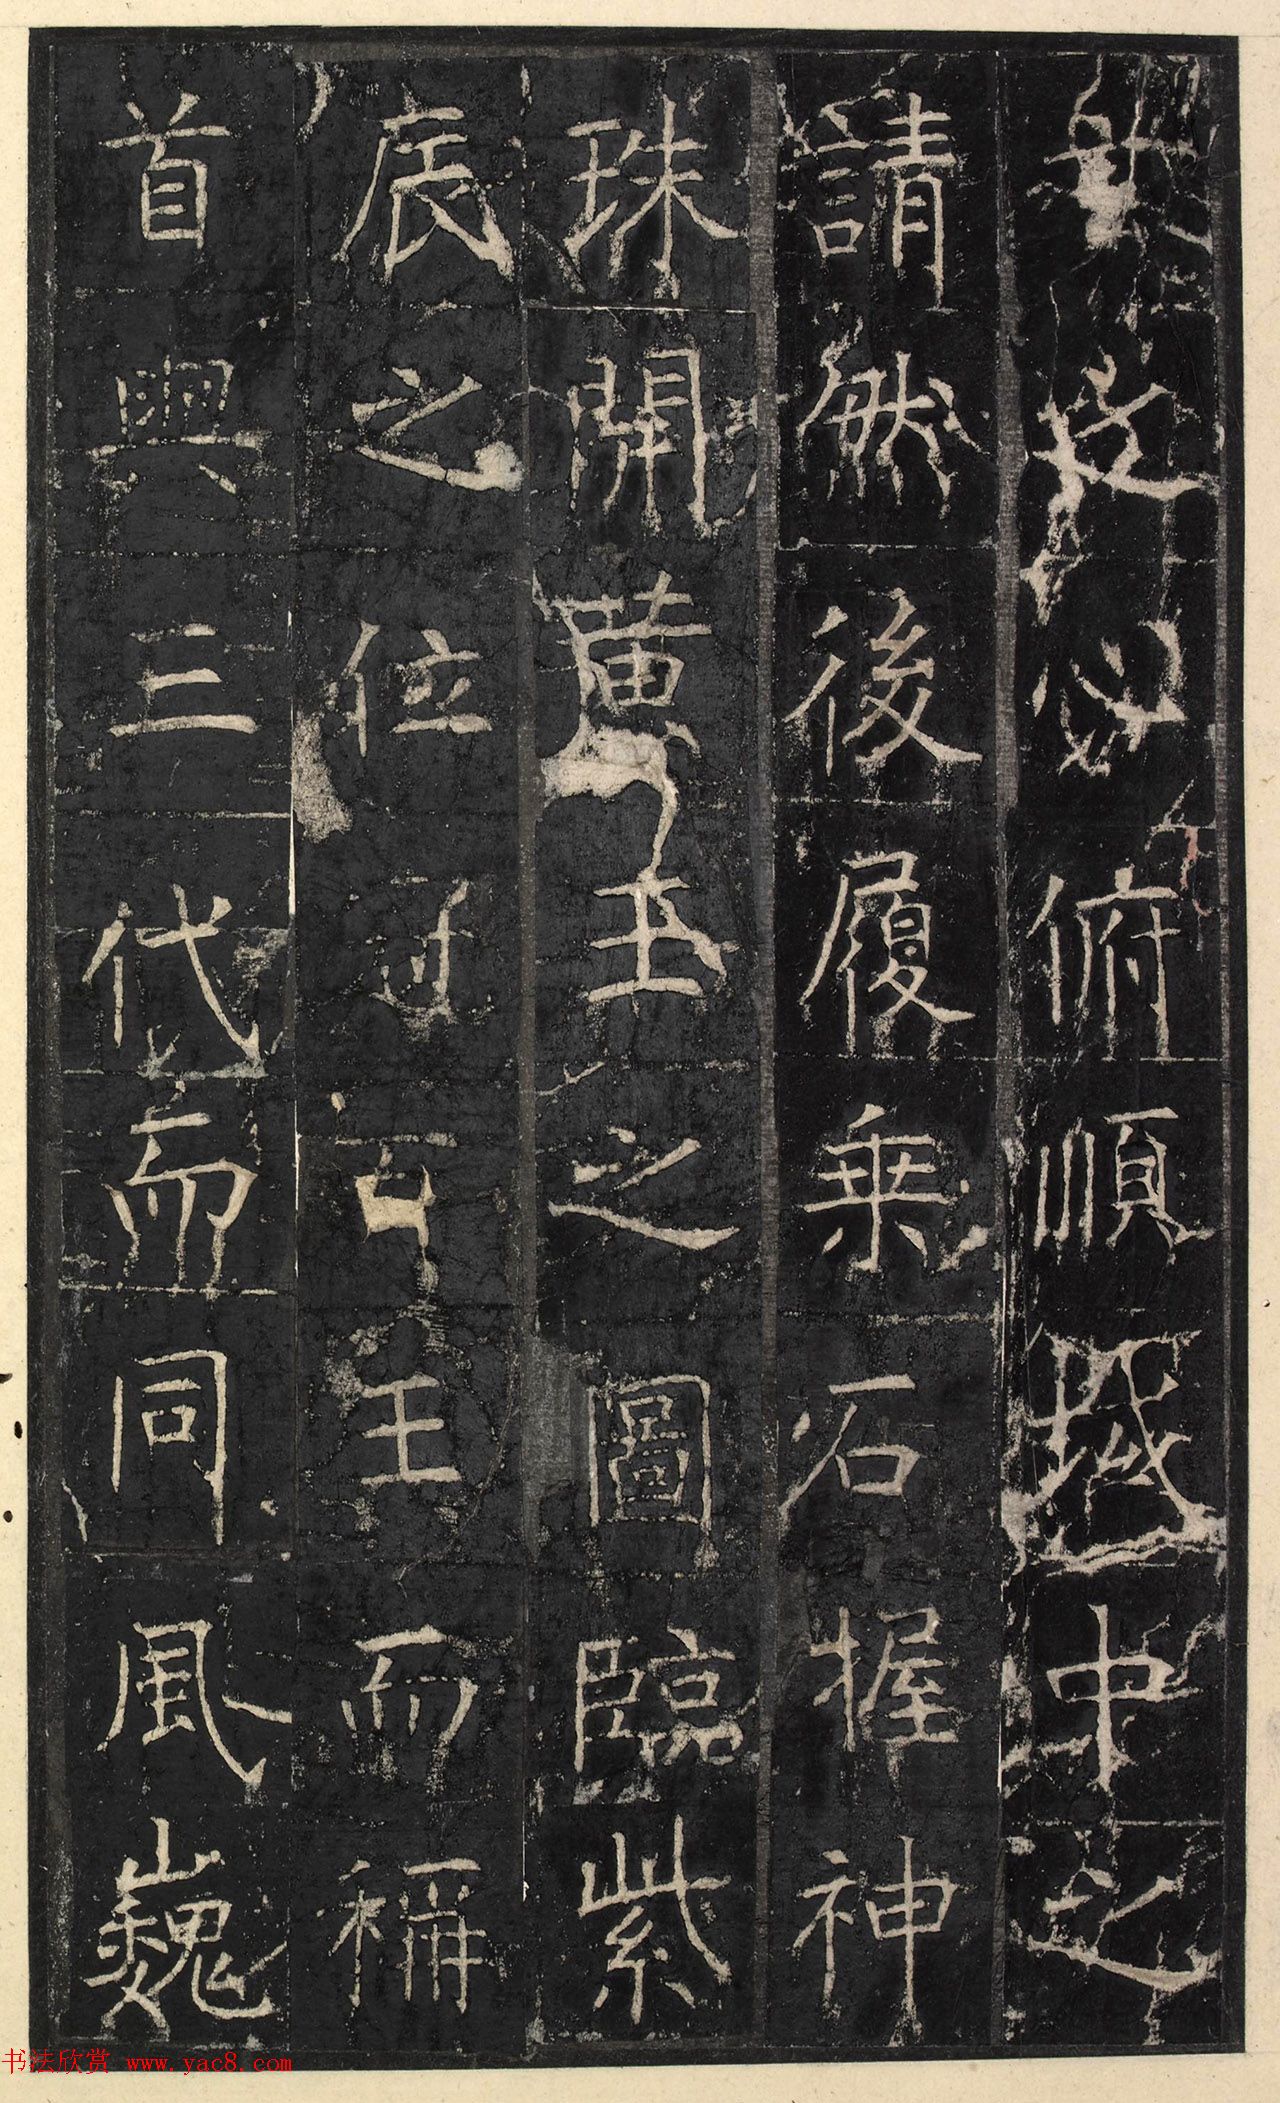 之心俯順域中之
請然後履乘石握神
珠開黃玉之圖臨紫
宸之位冠百王而稱
首與三代而同風巍
书法欣赏 www.yac8.com